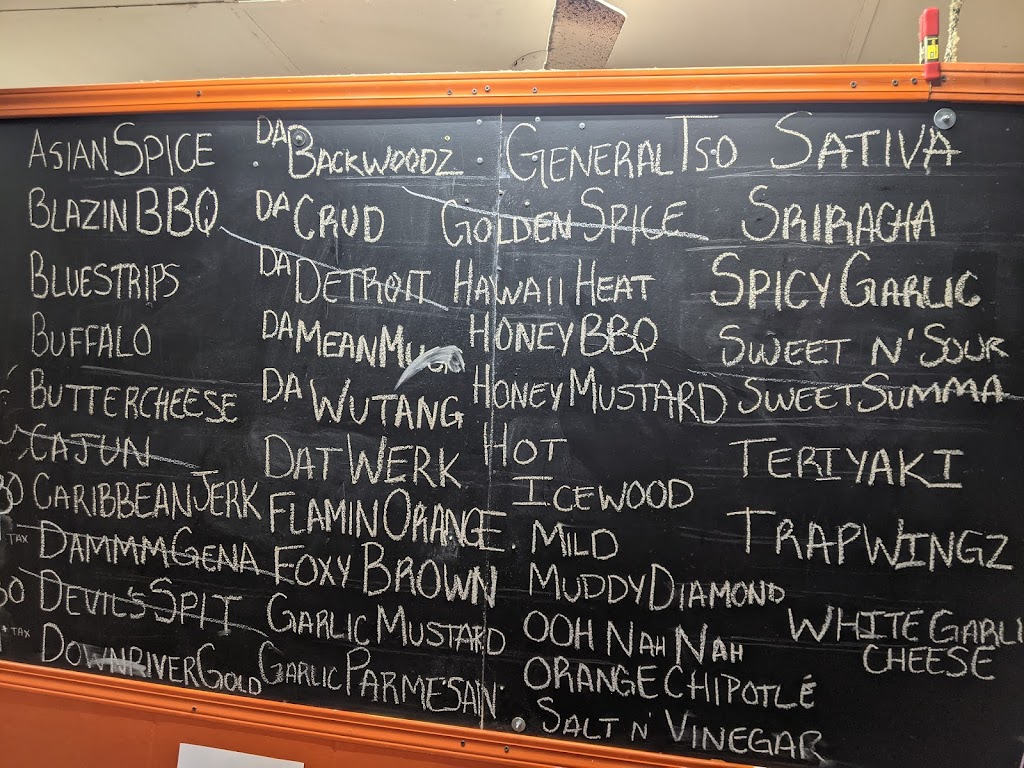 ASIAN SPICE
BLAZIN BBQ
BLUESTRIPS
BUFFALO
BUTTERCHEESE
CAJUN
CARIBBEAN JERK
TAX
DAMMM GENA
DEVIL'S SPIT
TAX
DOWNRIVER GOLD
DA BACKWOODZ
DA CRUD
DA DETROIT
DA MEAN MUGN
DA WUTANG
DAT WERK
FLAMIN ORANGE
FOXY BROWN
GARLIC MUSTARD
GARLIC PARMESAN
GENERAL TSO
GOLDEN SPICE
HAWAII HEAT
HONEY BBQ
HONEY MUSTARD
HOT
ICEWOOD
MILD
MUDDY DIAMOND
OOH NAH NAH
ORANGE CHIPOTLÉ
SALT N' VINEGAR
SATIVA
SRIRACHA
SPICY GARLIC
SWEET N' SOUR
SWEET SUMMA
TERIYAKI
TRAPWINGZ
WHITE GARLI
CHEESE